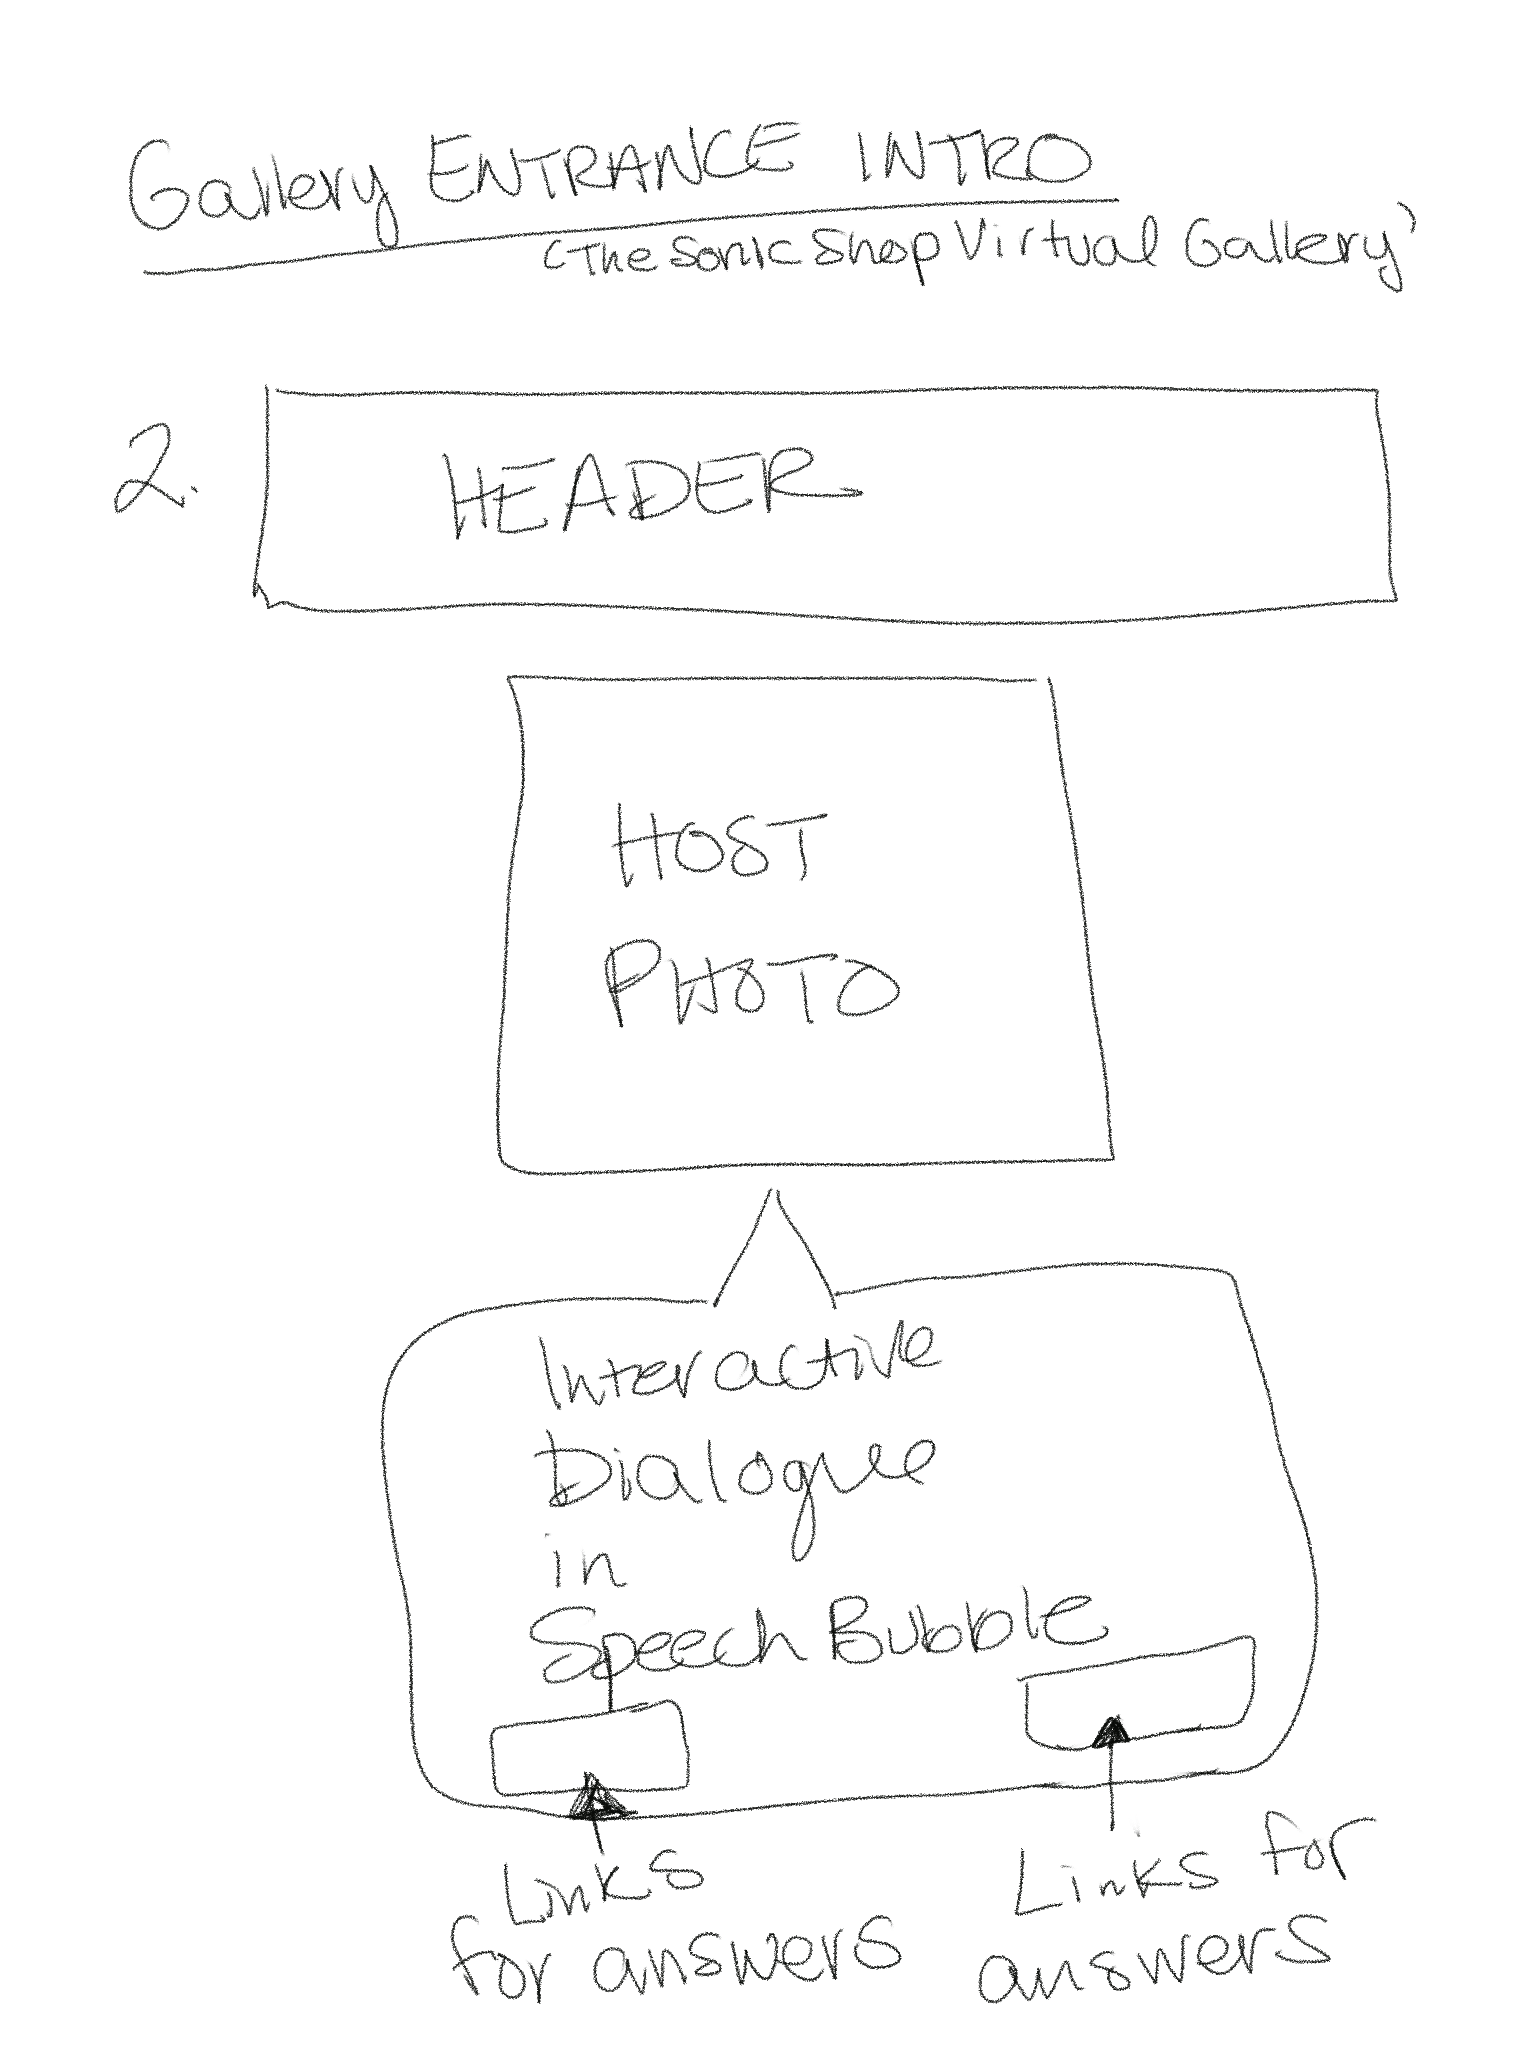 Gallery ENTRANCE INTRO
(The Sonic Shop Virtual Gallery)
2.
HEADER
HOST
PHOTO
Interactive
Dialogue
in
Speech Bubble
Links
for answers
Links for
answers